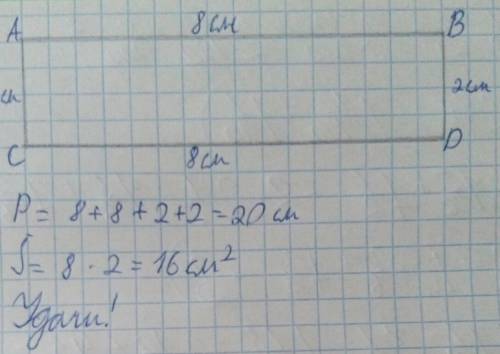 A 8 см B
см 2 см
C 8 см D
P = 8 + 8 + 2 + 2 = 20 см
S = 8 · 2 = 16 см²
Удачи!